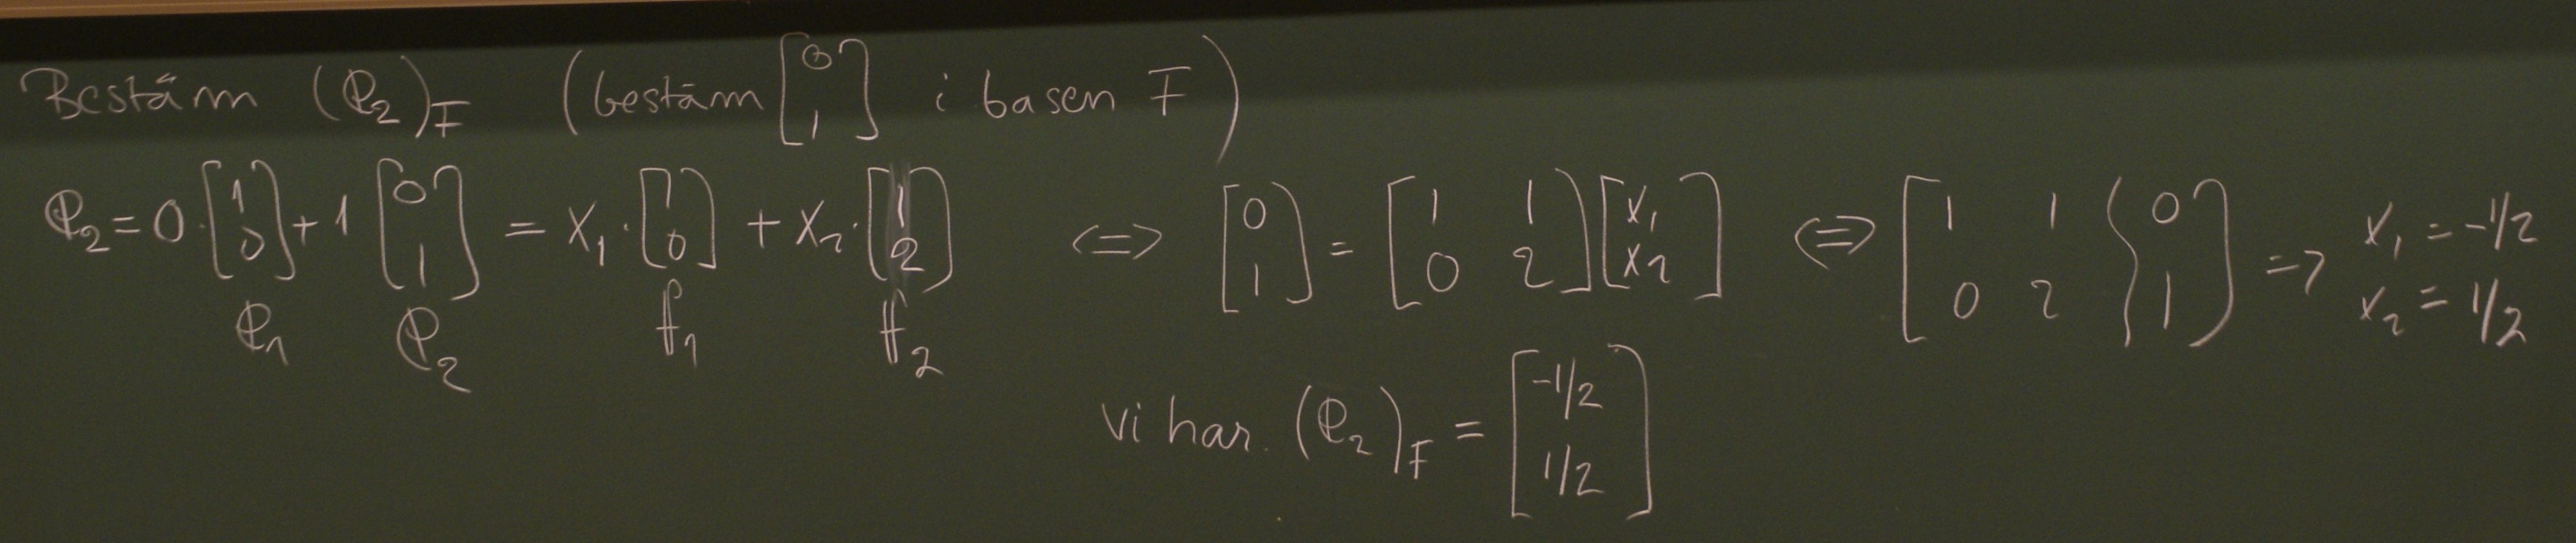 Bestäm (e₂)_F (bestäm [0; 1] i basen F)
e₂ = 0·[1; 0] + 1[0; 1] = x₁·[1; 0] + x₂·[1; 2] <=> [0; 1] = [1 1; 0 2][x₁; x₂] <=> [1 1 | 0; 0 2 | 1] => x₁ = -1/2 x₂ = 1/2
e₁ e₂ f₁ f₂
vi har. (e₂)_F = [-1/2; 1/2]